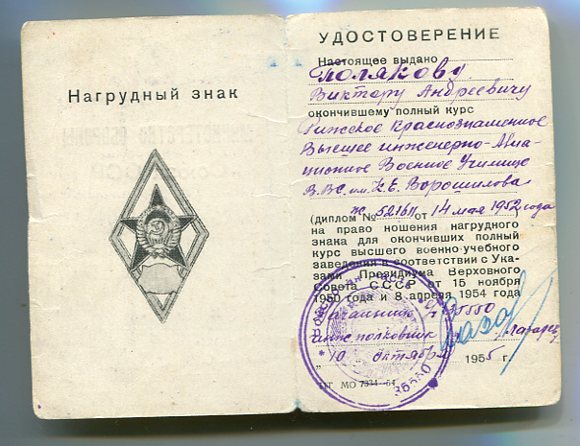 Нагрудный знак
УДОСТОВЕРЕНИЕ
Настоящее выдано
Полякову
Виктору Андреевичу
окончившему полный курс
Рижское Краснознаменное
Высшее инженерно-Авиа-
ционное Военное Училище
В.В.С. им. К.Е. Ворошилова
(диплом № 521611 от 14 мая 1952 года
на право ношения нагрудного
знака для окончивших полный
курс высшего военно-учебного
заведения в соответствии с Ука-
зами Президиума Верховного
Совета СССР от 15 ноября
1950 года и 8 апреля 1954 года
в/ч 35550
инж. полковник Лазарев
"10" октября 1955 г.
МО 7334-54
35550